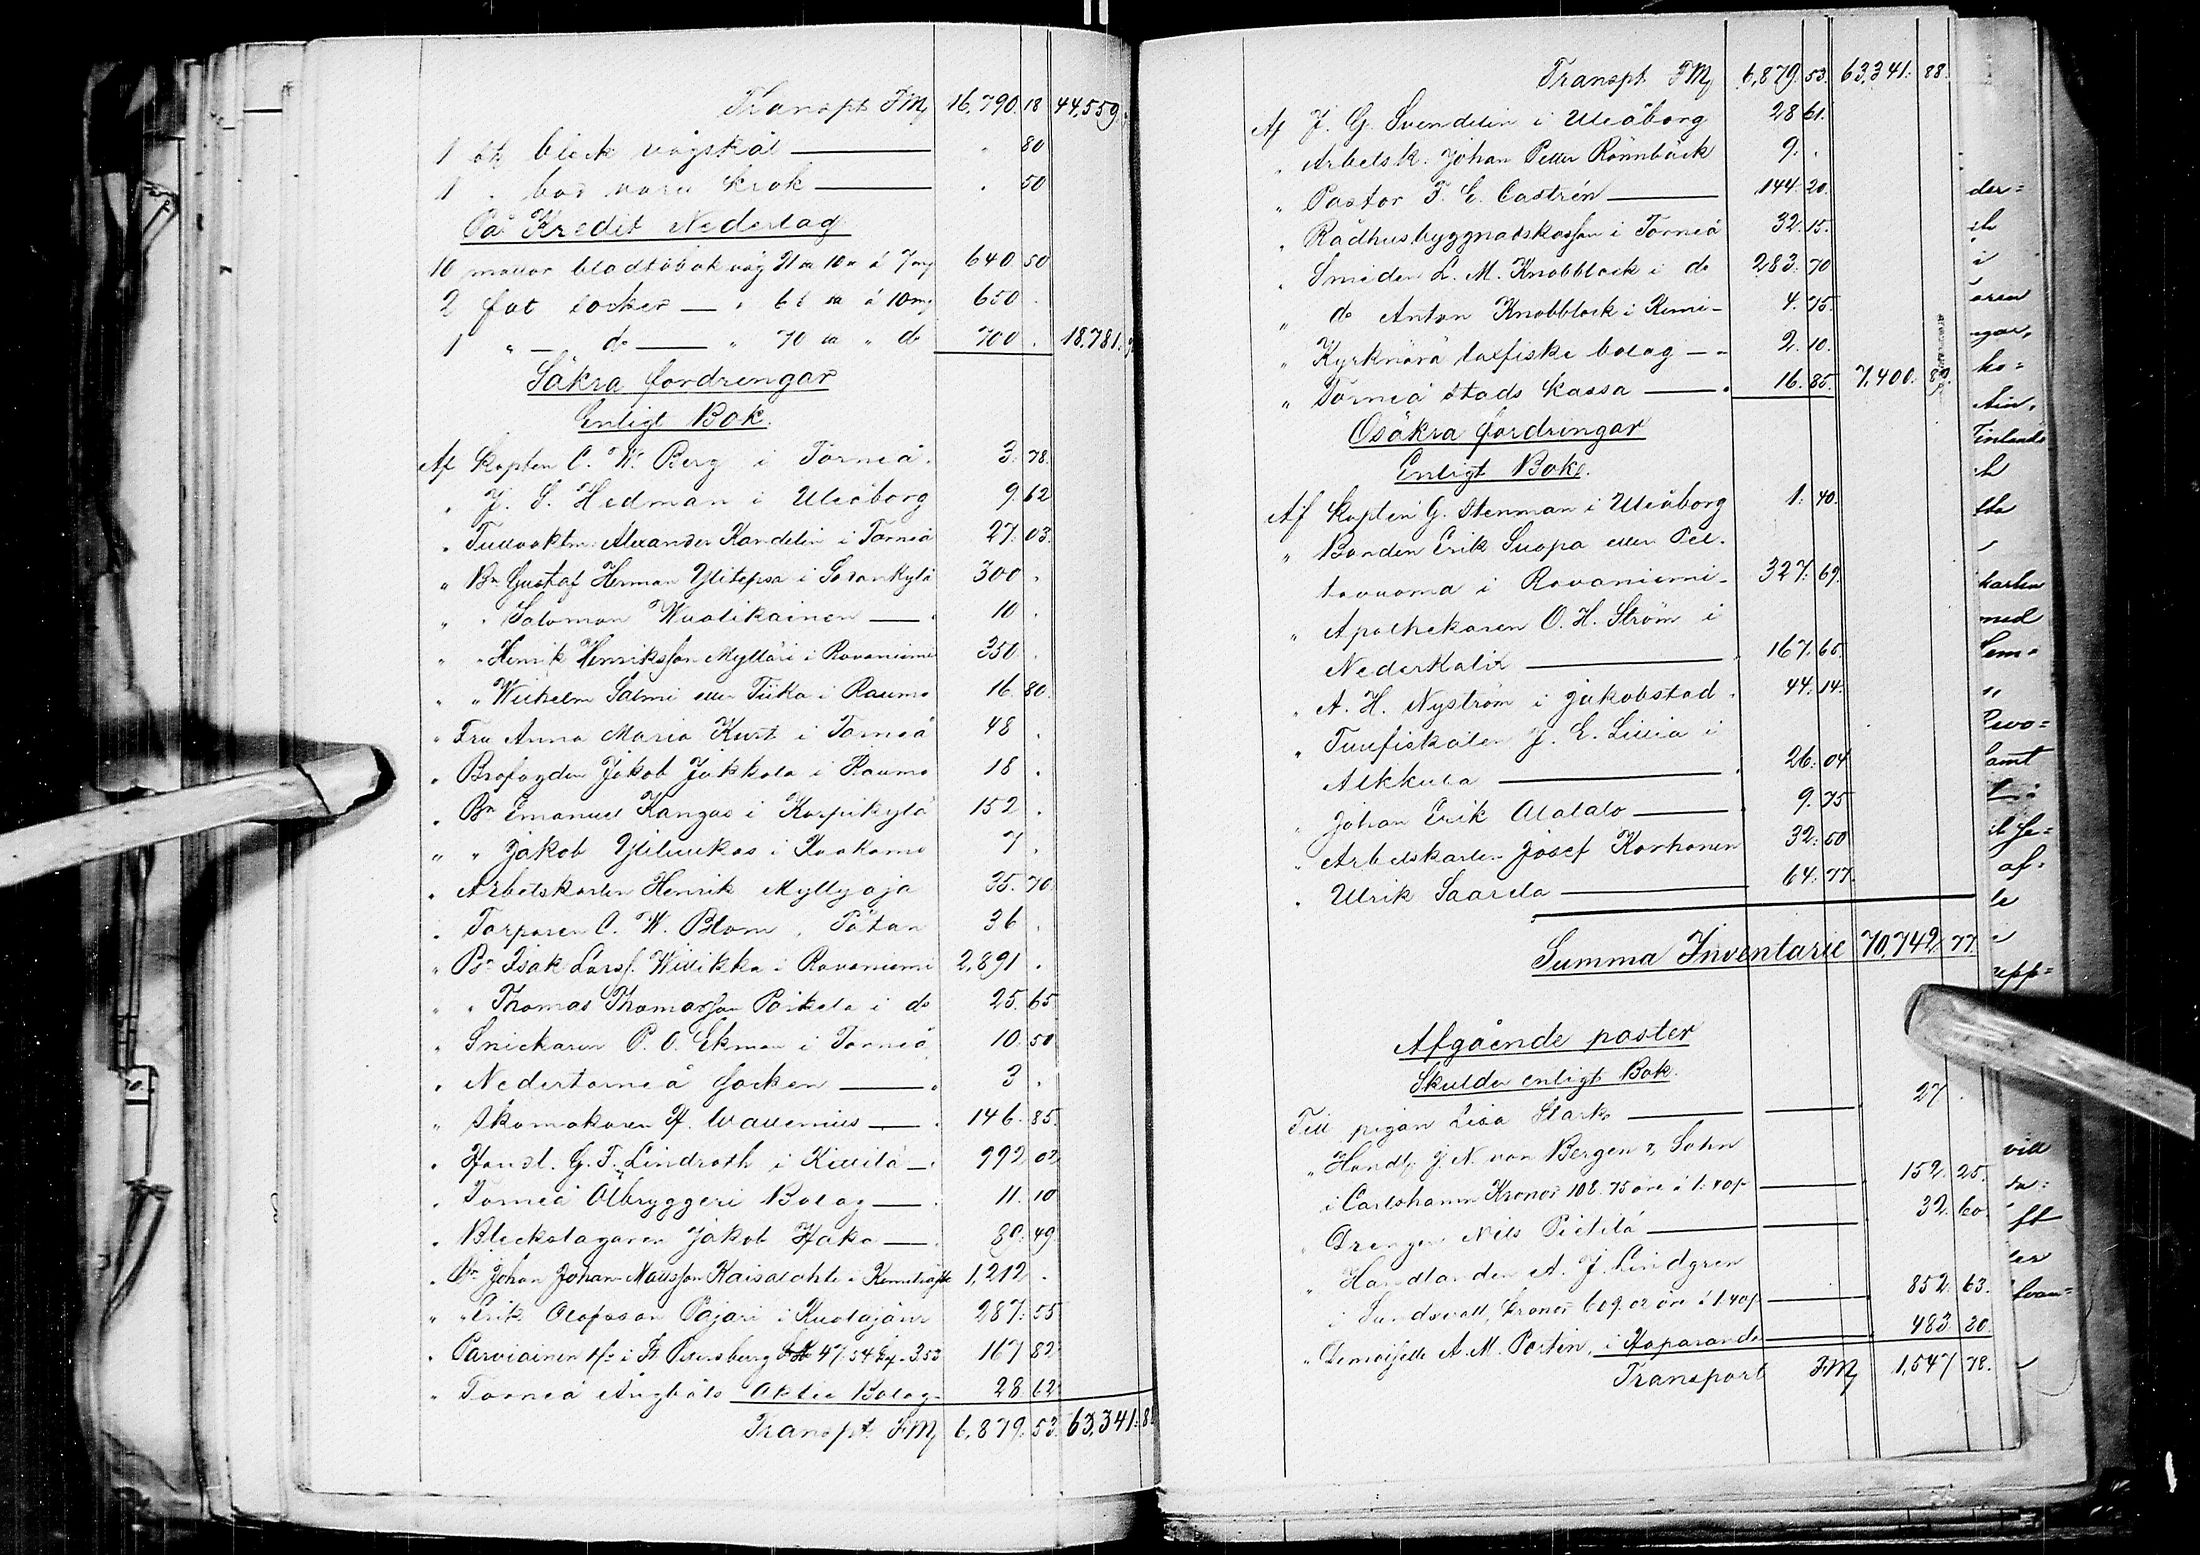 Transpt FM 16,790. 18 44,559.
1 st bleck vågskål — . 80
1 " bod varu krok — . 50
På Kredit Nederlag
10 mattor bladtobak väg à 7 m 640 50
2 fat socker — " 65 à 10 m 650 .
1 " — do — " 70 " do 700 . 18,781.
Säkra fordringar
Enligt Bok.
Af Kapten C. W. Berg i Torneå. 3. 78.
" J. S. Hedman i Uleåborg 9. 62
" Tullvaktm. Alexander Kandelin i Torneå 27. 03.
" Bn Gustaf Herman Ylitepsa i Sodankylä 300 .
" " Salomon Wuolikainen — 10 .
" " Henrik Henriksson Mylläri i Rovaniemi 350 .
" " Wilhelm Salmi eller Tiika i Raumo 16. 80.
" Fru Anna Maria Kurt i Torneå 48 .
" Brofogden Jakob Jakkola i Raumo 18 .
" Bn Emanuel Kangas i Karpikylä 152 .
" " Jakob Yliluukas i Kaakamo 7 .
" Arbetskarlen Henrik Myllyoja 35. 70.
" Torparen C. W. Blom, Pötan 36 .
" Bn Isak Larss. Willikka i Rovaniemi 2,891 .
" " Thomas Thomasson Poikela i do 25. 65
" Snickaren P. O. Ekman i Torneå 10. 50
" Nedertorneå Socken — 3 .
" Skomakaren H. Wallenius — 146. 85.
" Handl. G. F. Lindroth i Kittilä — 992. 02
" Torneå Ölbryggeri Bolag — 11. 10
" Bleckslagaren Jakob Haka — 80. 49.
" Bn Johan Johan-Mattsson Kaisalahti i Kemiträsk 1,212 .
" " Erik Olofsson Pajari i Kuolajärvi 287. 55
" Parviainen i St Petersburg 47.54 3.52 167 82
" Torneå Ångbåts Aktie Bolag 28 62
Transpt. FM 6,879. 53. 63,341. 88
Transpt FM 6,879. 53. 63,341. 88.
Af J. G. Svendelin i Uleåborg 28 61.
" Arbetsk. Johan Petter Rönnbäck 9. .
" Pastor F. E. Castrén — 144. 20.
" Rådhusbyggnadskassan i Torneå 32. 15.
" Smeden L. M. Knobblock i do 283. 70
" do Anton Knobblock i Kemi — 4. 75.
" Kyrknärä laxfiske bolag — 2. 10.
" Torneå Stads Kassa — 16. 85. 7,400. 89.
Osäkra fordringar
Enligt Bok.
Af Kapten G. Stenman i Uleåborg 1. 40.
" Bonden Erik Suopa eller Pel-
tovuoma i Rovaniemi — 327. 69.
" Apothekaren O. H. Ström i
Nederkalix — 167. 65.
" A. H. Nyström i Jakobstad 44. 14.
" Tullfiskalen J. E. Lillia i
Alkkula — 26. 04
" Johan Erik Alatalo — 9. 75
" Arbetskarlen Josef Korhonen 32. 50
" Ulrik Saarela — 64. 77.
Summa Inventarie 70,742. 77.
Afgående poster
Skulder enligt Bok.
Till pigan Lisa Stark — 27 .
" Handl. J. N. von Bergen & Sohn
i Carlshamn Kronor 108. 75 öre à 1.40 p — 152. 25.
" Drengen Nils Pietilä — 32. 60.
" Handlanden A. J. Lindgren
i Sundsvall, Kronor 609. 02 öre à 1.40 p — 852. 63.
" Demoiselle A. M. Portin, i Haparanda 483. 30.
Transport FM 1,547 78.